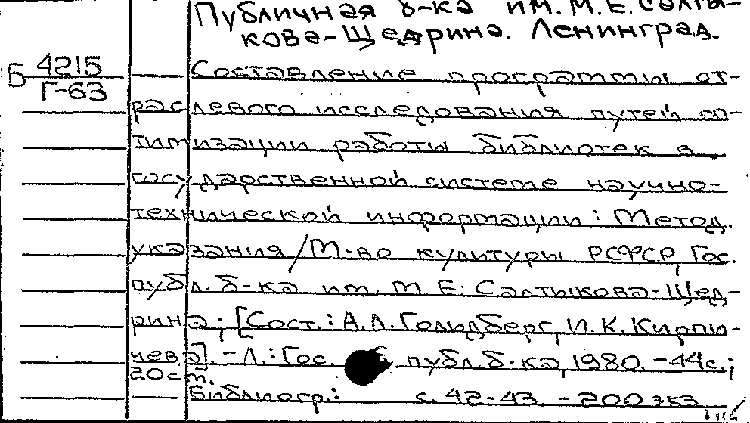 Публичная б-ка им. М. Е. Салты-
кова-Щедрина. Ленинград.
Б 4215
Г-63
Составление программы от-
раслевого исследования путей оп-
тимизации работы библиотек в
государственной системе научно-
технической информации: Метод.
указания/М-во культуры РСФСР, Гос.
публ. б-ка им. М. Е. Салтыкова-Щед-
рина; [Сост.: А. Л. Гольдберг, И. К. Кирпи-
чева]. - Л.: Гос. публ. б-ка, 1980. - 44 с.;
20 см.
Библиогр.: с. 42-43. - 200 экз.